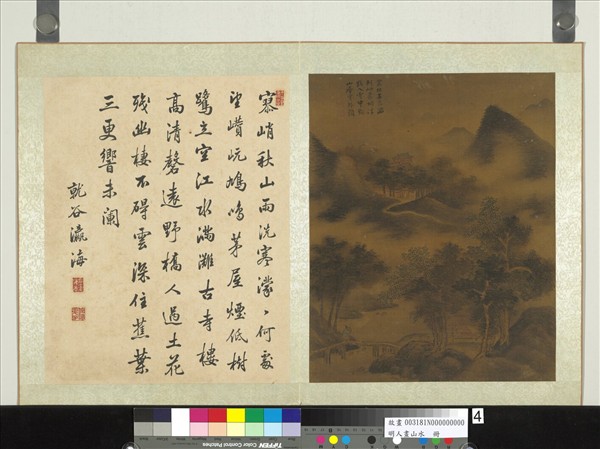 寥峭秋山雨洗寒濛、何處
望巑岏鳩鳴茅屋煙低樹
鷺立空江水滿灘古寺樓
高清磬遠野橋人過土花
殘幽棲不碍雲深住蕉葉
三更響未闌
就谷瀛海
4
故畫 003181N000000000
明人畫山水 冊
TIFFEN Color Control Patches